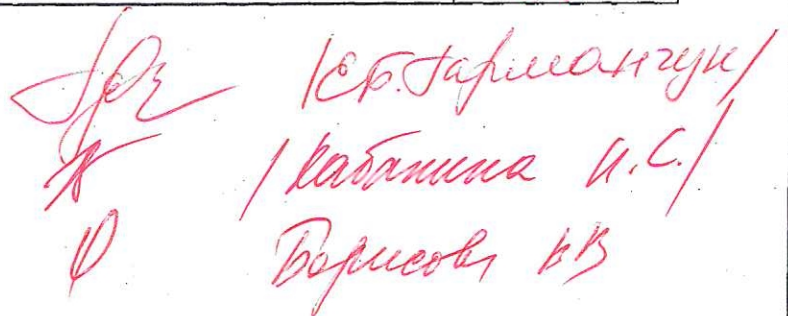 /Е.Б. Гарманчук/
/Кабанина И.С./
Борисова ВВ